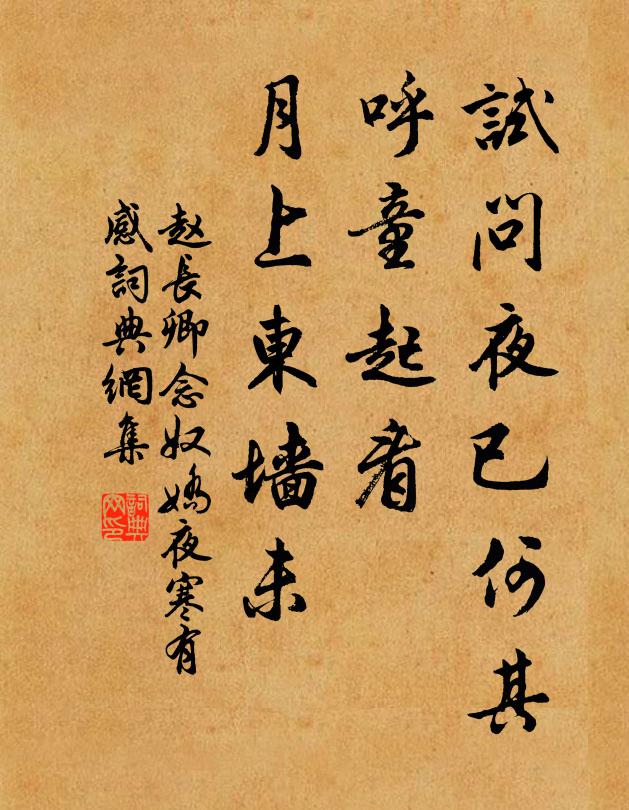 試問夜已何其
呼童起看
月上東墻未
赵長卿念奴嬌夜寒有
感詞典網集
詞典
网印